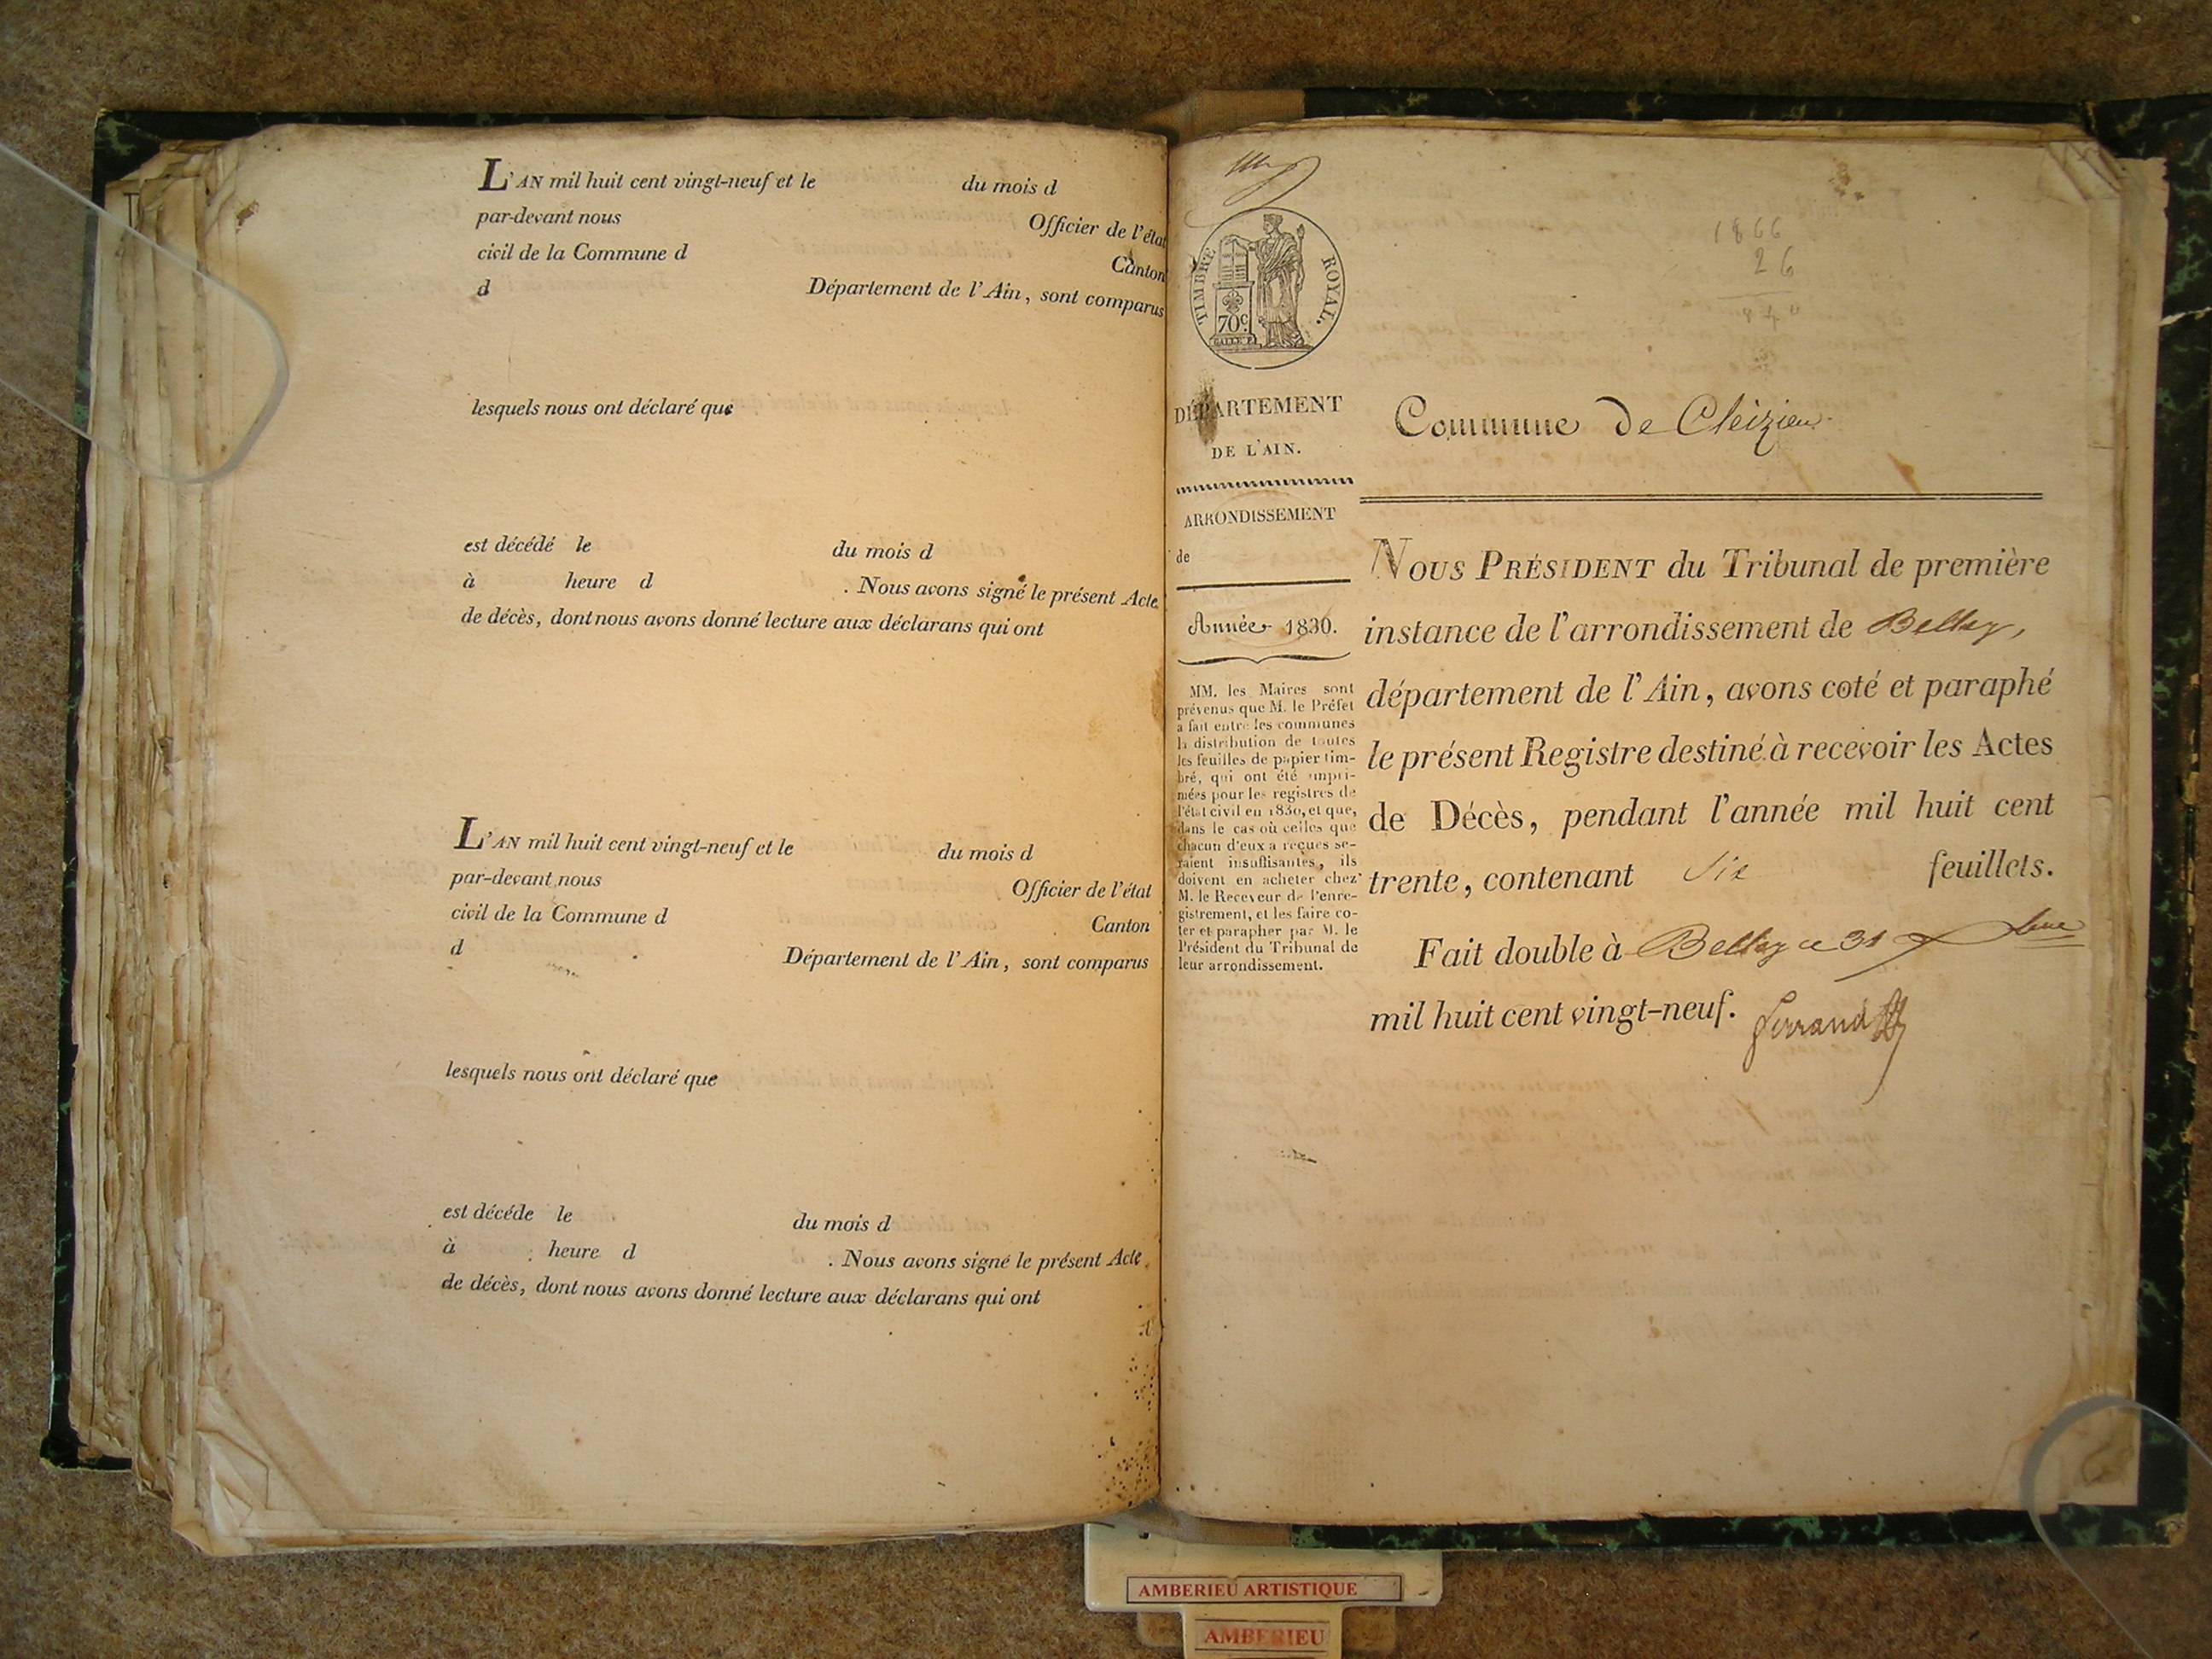 L'AN mil huit cent vingt-neuf et le du mois d
par-devant nous Officier de l'état
civil de la Commune d Canton
d Département de l'Ain, sont comparus
lesquels nous ont déclaré que
est décédé le du mois d
à heure d . Nous avons signé le présent Acte
de décès, dont nous avons donné lecture aux déclarans qui ont
L'AN mil huit cent vingt-neuf et le du mois d
par-devant nous Officier de l'état
civil de la Commune d Canton
d Département de l'Ain, sont comparus
lesquels nous ont déclaré que
est décéde le du mois d
à heure d . Nous avons signé le présent Acte
de décès, dont nous avons donné lecture aux déclarans qui ont
TIMBRE ROYAL.
70c
DÉPARTEMENT
DE L'AIN.
ARRONDISSEMENT
de
Année 1830.
MM. les Maires sont
prévenus que M. le Préfet
a fait entre les communes
la distribution de toutes
les feuilles de papier tim-
bré, qui ont été impri-
mées pour les registres de
l'état civil en 1830, et que,
dans le cas où celles que
chacun d'eux a reçues se-
raient insuffisantes, ils
doivent en acheter chez
M. le Receveur de l'enre-
gistrement, et les faire co-
ter et parapher par M. le
Président du Tribunal de
leur arrondissement.
1866
26
Commune de Cleizieu
NOUS PRÉSIDENT du Tribunal de première
instance de l'arrondissement de Belley,
département de l'Ain, avons coté et paraphé
le présent Registre destiné à recevoir les Actes
de Décès, pendant l'année mil huit cent
trente, contenant Six feuillets.
Fait double à Belley ce 31
mil huit cent vingt-neuf. Ferrand
AMBERIEU ARTISTIQUE
AMBERIEU